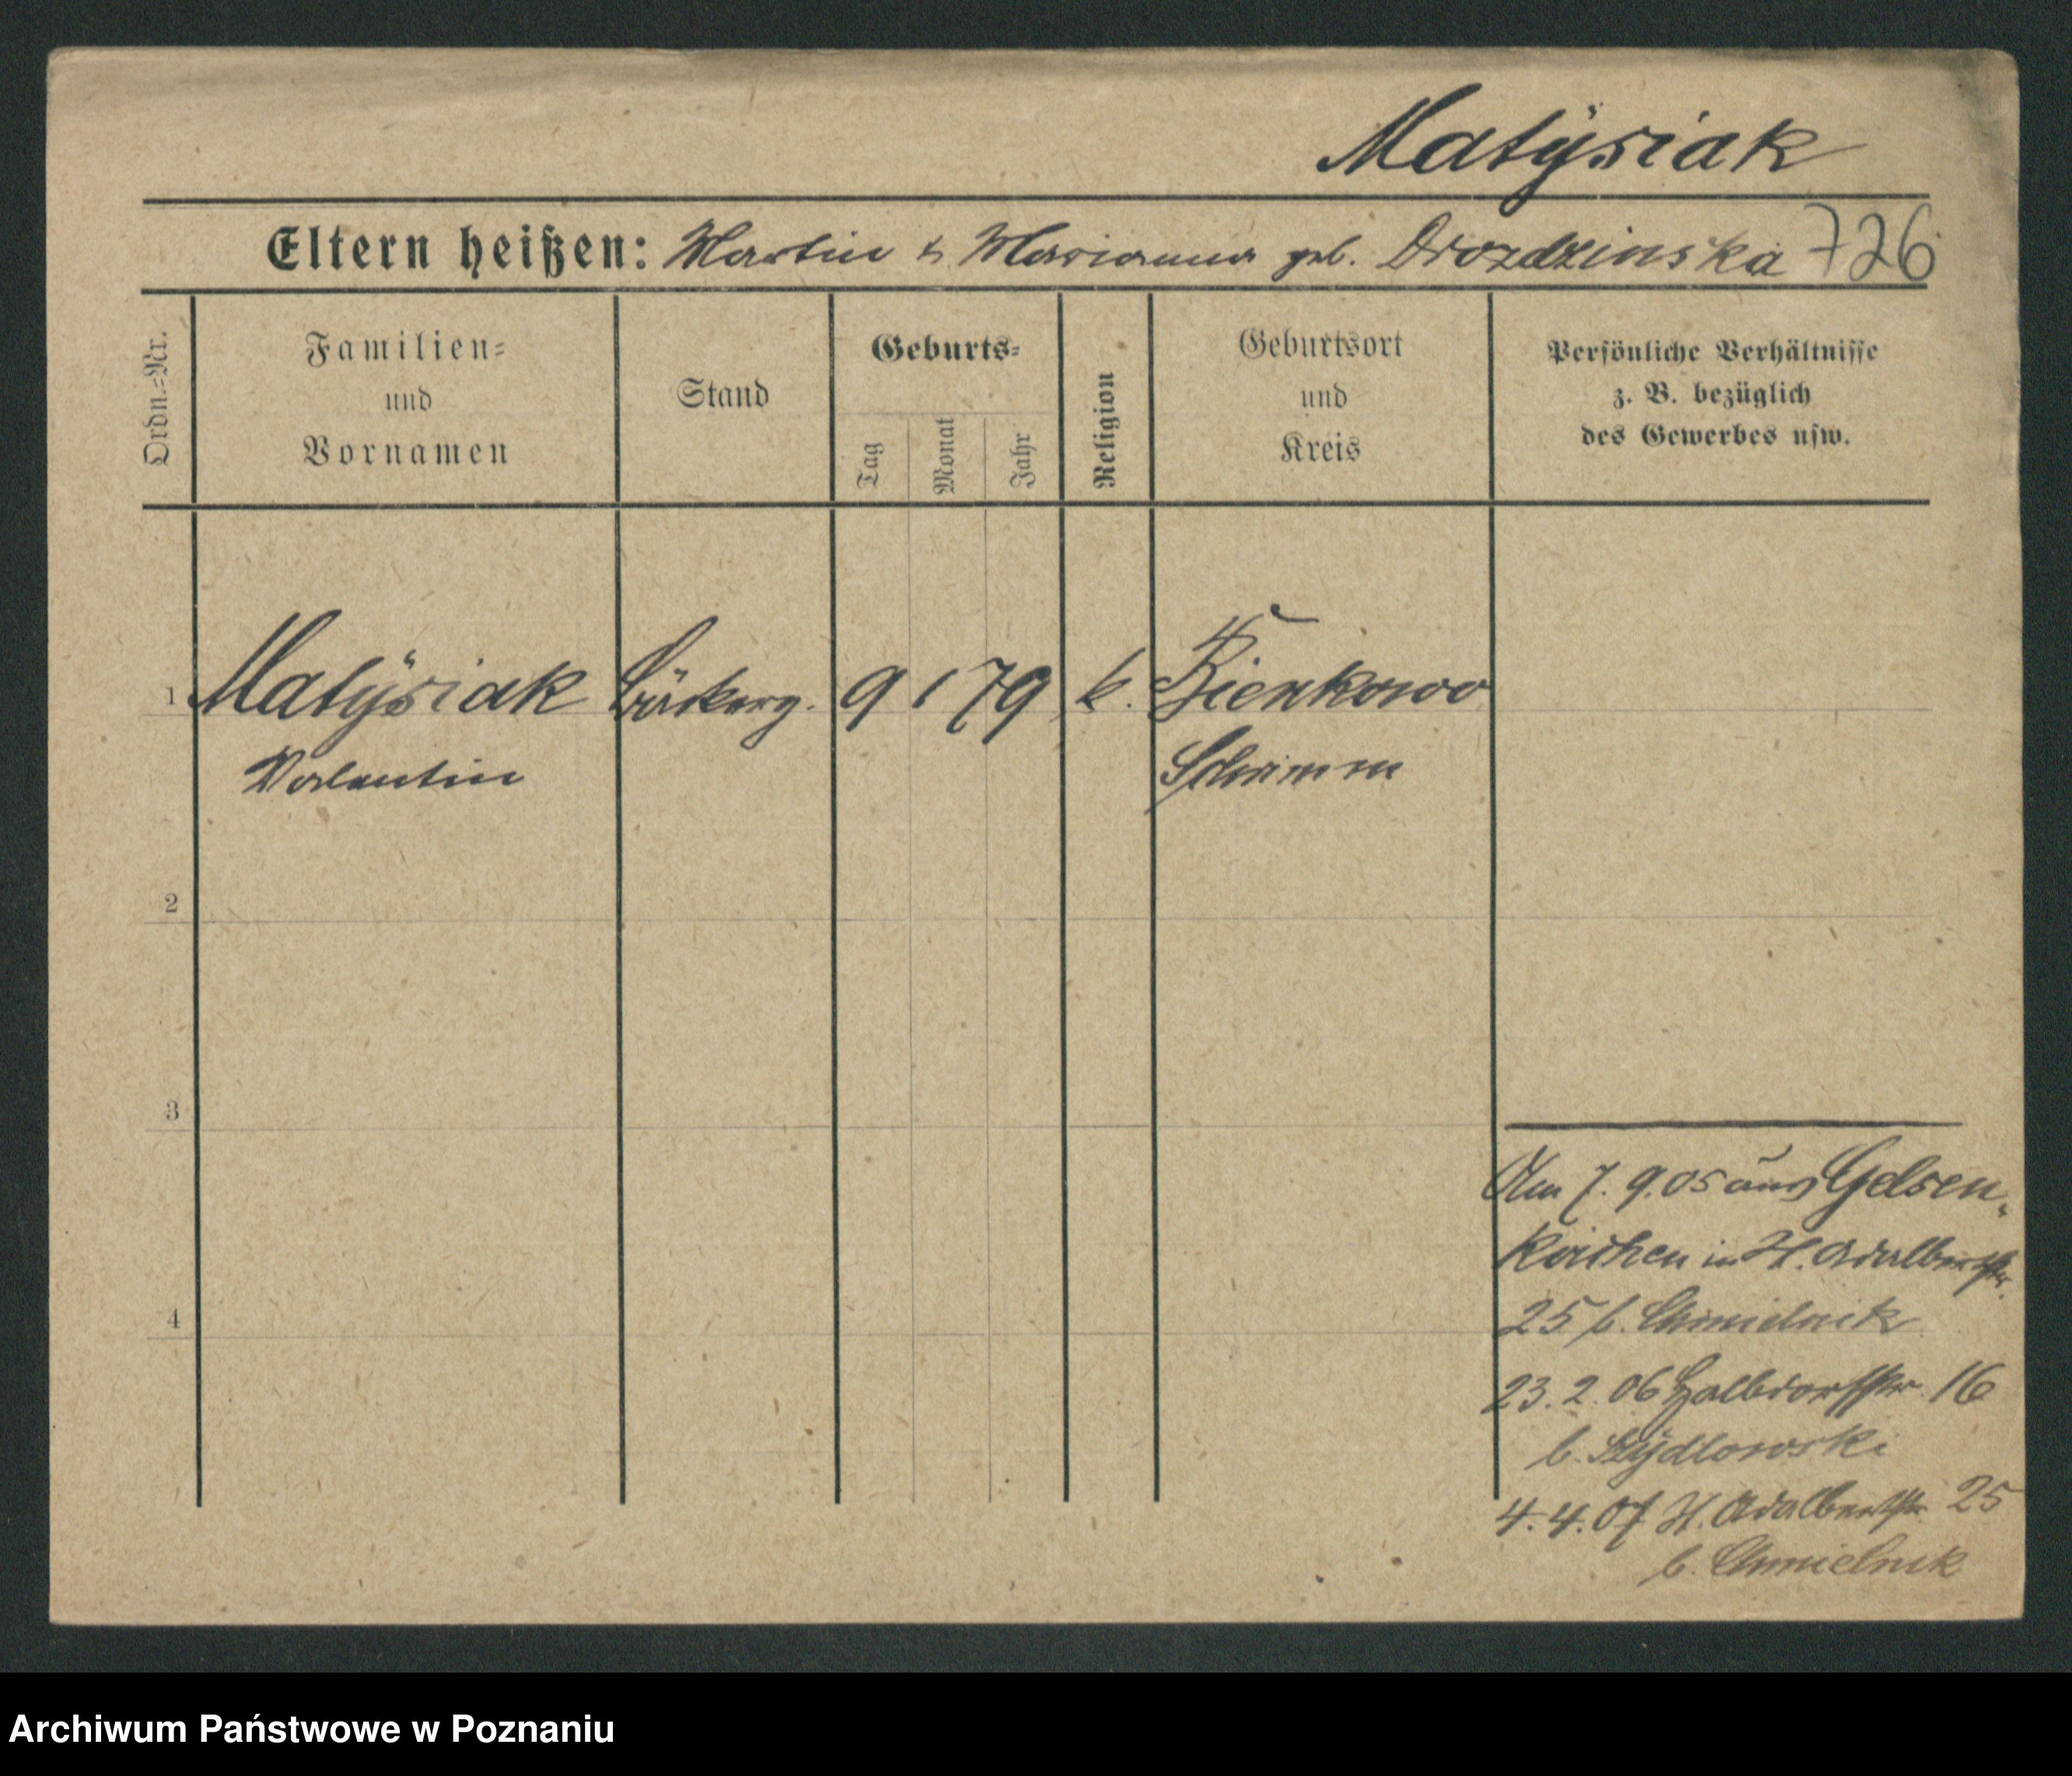 Matÿsiak
Eltern heißen: Martin & Marianna geb. Drozdzinska 726
Ordn.=Nr.
Familien=
und
Vornamen
Stand
Geburts=
Tag
Monat
Jahr
Religion
Geburtsort
und
Kreis
Persönliche Verhältnisse
z. B. bezüglich
des Gewerbes usw.
1 Matÿsiak Bäckerg. 9 1 79 k. Bienkowo
Valentin Schrimm
2
3
4
Am 7. 9. 05 aus Gelsen-
kirchen in H. Adalbertstr.
25 b. Chmielnik
23. 2. 06 Halbdorfstr. 16
b. Szÿdlowski
4. 4. 07 H. Adalbertstr. 25
b. Chmielnik
Archiwum Państwowe w Poznaniu